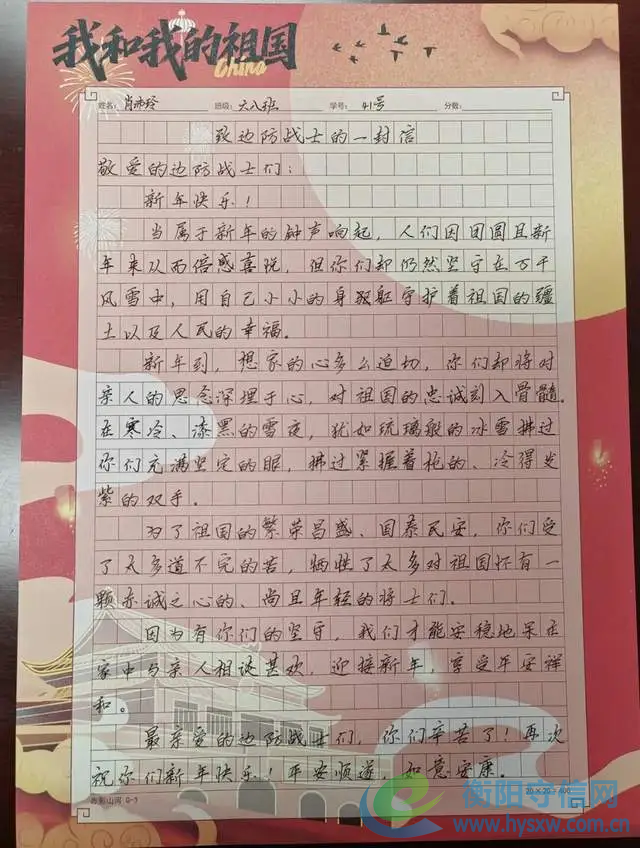 我和我的祖国
China
姓名: 肖沛玲 班级: 六八班 学号: 41号 分数:
致边防战士的一封信
敬爱的边防战士们:
新年快乐!
当属于新年的钟声响起,人们因团圆且新
年来以而倍感喜悦,但你们却仍然坚守在万千
风雪中,用自己小小的身躯守护着祖国的疆
土以及人民的幸福。
新年到,想家的心多么迫切,你们却将对
亲人的思念深埋于心,对祖国的忠诚刻入骨髓。
在寒冷、漆黑的雪夜,犹如琉璃般的冰雪拂过
你们充满坚定的眼,拂过紧握着枪的、冷得发
紫的双手。
为了祖国的繁荣昌盛、国泰民安,你们受
了太多道不完的苦,牺牲了太多对祖国怀有一
颗赤诚之心的、尚且年轻的将士们。
因为有你们的坚守,我们才能安稳地呆在
家中与亲人相谈甚欢,迎接新年,享受平安祥
和。
最亲爱的边防战士们,你们辛苦了!再次
祝你们新年快乐!平安顺遂,如意安康。
20×20=400
衡阳守信网
www.hysxw.com.cn